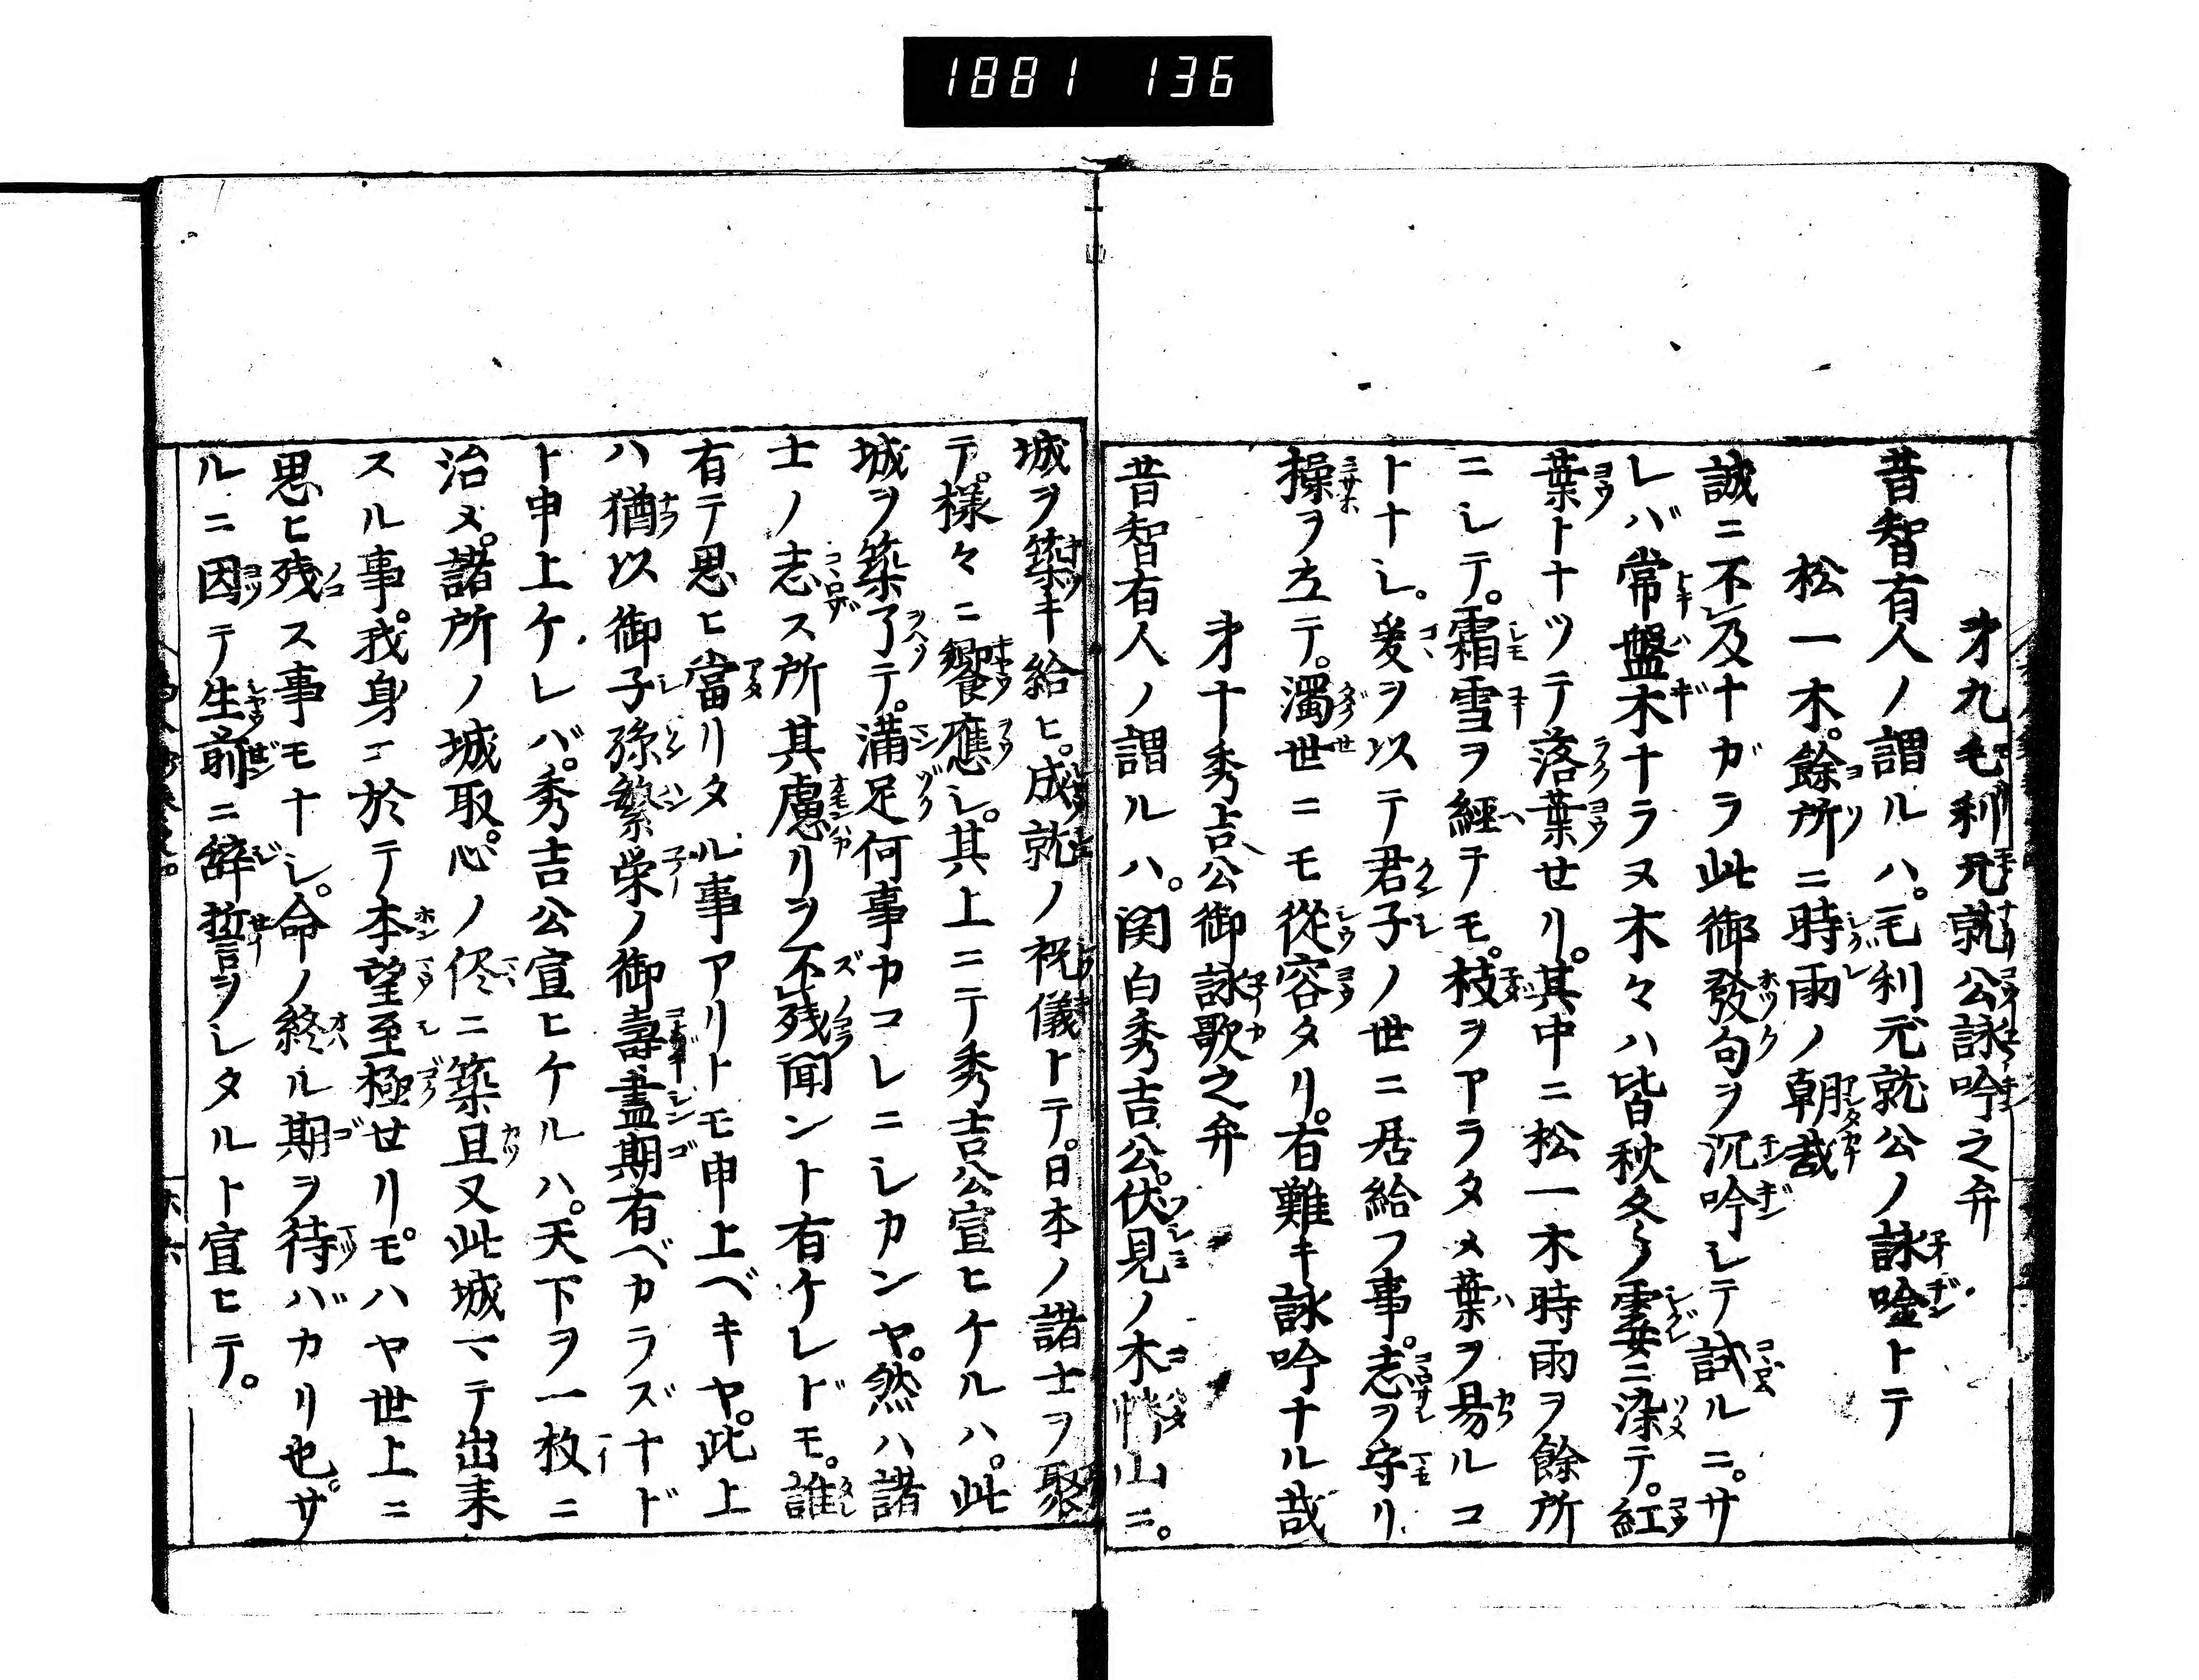 1881 136
才九毛利元就公詠吟之弁
昔智有人ノ謂ルハ。毛利元就公ノ詠唫トテ
松一木。餘所ニ時雨ノ朝哉
誠ニ不レ及ナガラ此御發句ヲ沉吟シテ試ルニ。サ
レバ常盤木ナラヌ木々ハ皆秋冬ノ霎ニ染テ。紅
葉トナツテ落葉せリ。其中ニ松一木時雨ヲ餘所
ニシテ。霜雪ヲ經テモ。枝ヲアラタメ葉ヲ易ルコ
トナシ。爰ヲ以テ君子ノ世ニ居給フ事。志ヲ守リ
操ヲ立テ。濁世ニモ從容タリ。有難キ詠吟ナル哉
才十秀吉公御詠歌之弁
昔智有人ノ謂ルハ。関白秀吉公。伏見ノ木幡山ニ。
城ヲ築キ給ヒ。成就ノ祝儀トテ。日本ノ諸士ヲ聚
テ。様々ニ饗應シ。其上ニテ秀吉公宣ヒケルハ。此
城ヲ築了テ。満足何事カコレニシカンヤ。然ハ諸
士ノ志ス所其慮リヲ不レ残聞ント有ケレドモ。誰
有テ思ヒ當リタル事アリトモ申上ベキヤ。此上
ハ猶以御子孫繁栄ノ御壽盡期有ベカラズナド
ト申上ケレバ。秀吉公宣ヒケルハ。天下ヲ一枚ニ
治メ。諸所ノ城取。心ノ侭ニ築且又此城マテ出来
スル事。我身ニ於テ本望至極せリ。モハヤ世上ニ
思ヒ残ス事モナシ。命ノ終ル期ヲ待バカリ也。サ
ルニ因テ生前ニ辞誓ヲシタルト宣ヒテ。